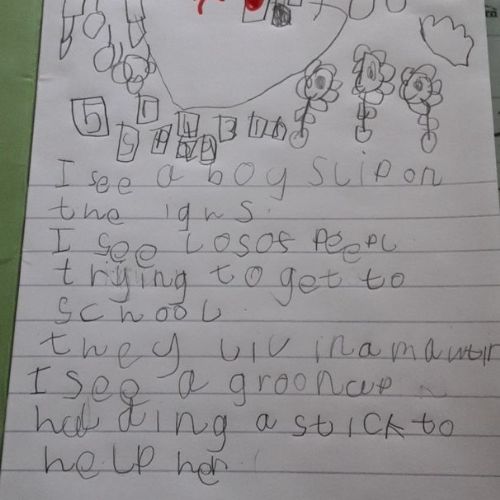 I see a boy slip on
the igns.
I see Losos PeePL
trying to get to
school
they LiV inamawtin
I see a grooncup
holding a stick to
help her